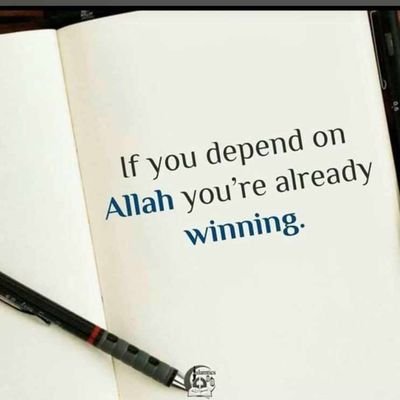 If you depend on
Allah you're already
winning.